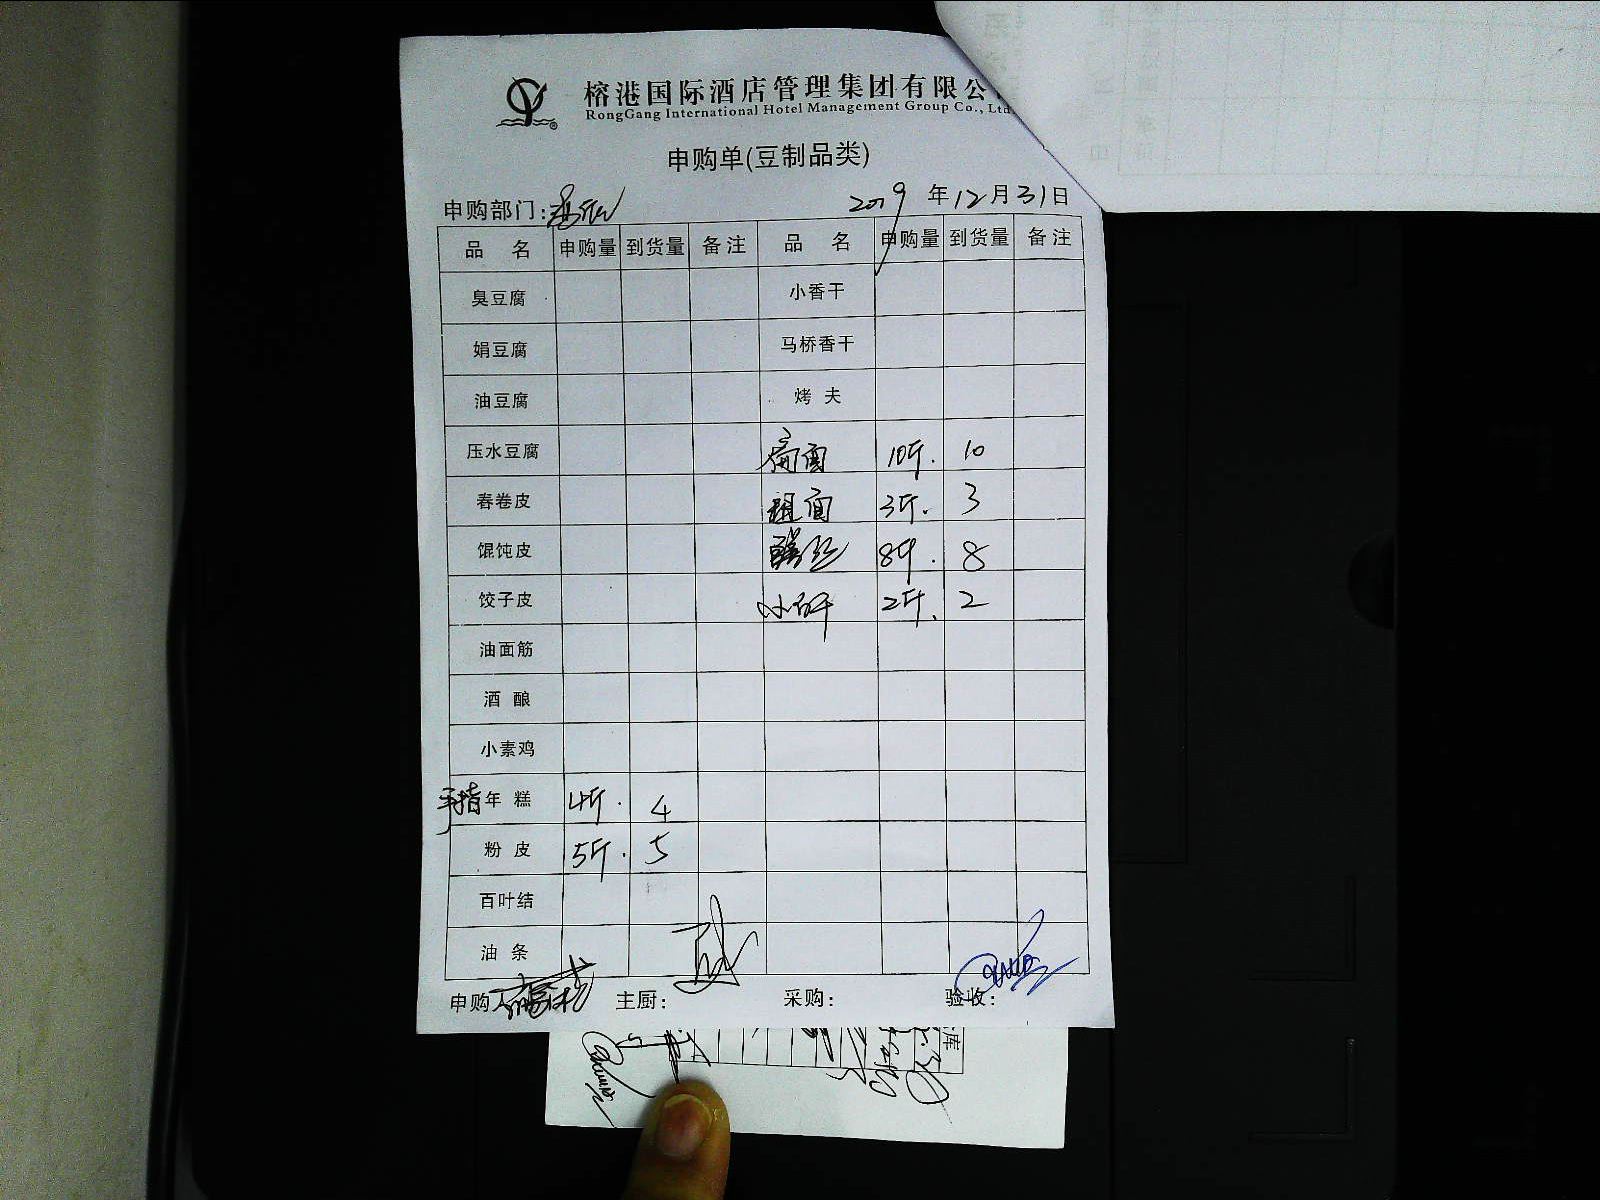 榕港国际酒店管理集团有限公
RongGang International Hotel Management Group Co., Ltd
申购单(豆制品类)
申购部门: 2019年12月31日
品 名 申购量 到货量 备注 品 名 申购量 到货量 备注
臭豆腐 小香干
娟豆腐 马桥香干
油豆腐 烤 夫
压水豆腐 扁面 10斤. 10
春卷皮 粗面 3斤. 3
馄饨皮 8斤. 8
饺子皮 2斤. 2
油面筋
酒 酿
小素鸡
手指年 糕 4斤. 4
粉 皮 5斤. 5
百叶结
油 条
申购人 主厨: 采购: 验收:
库